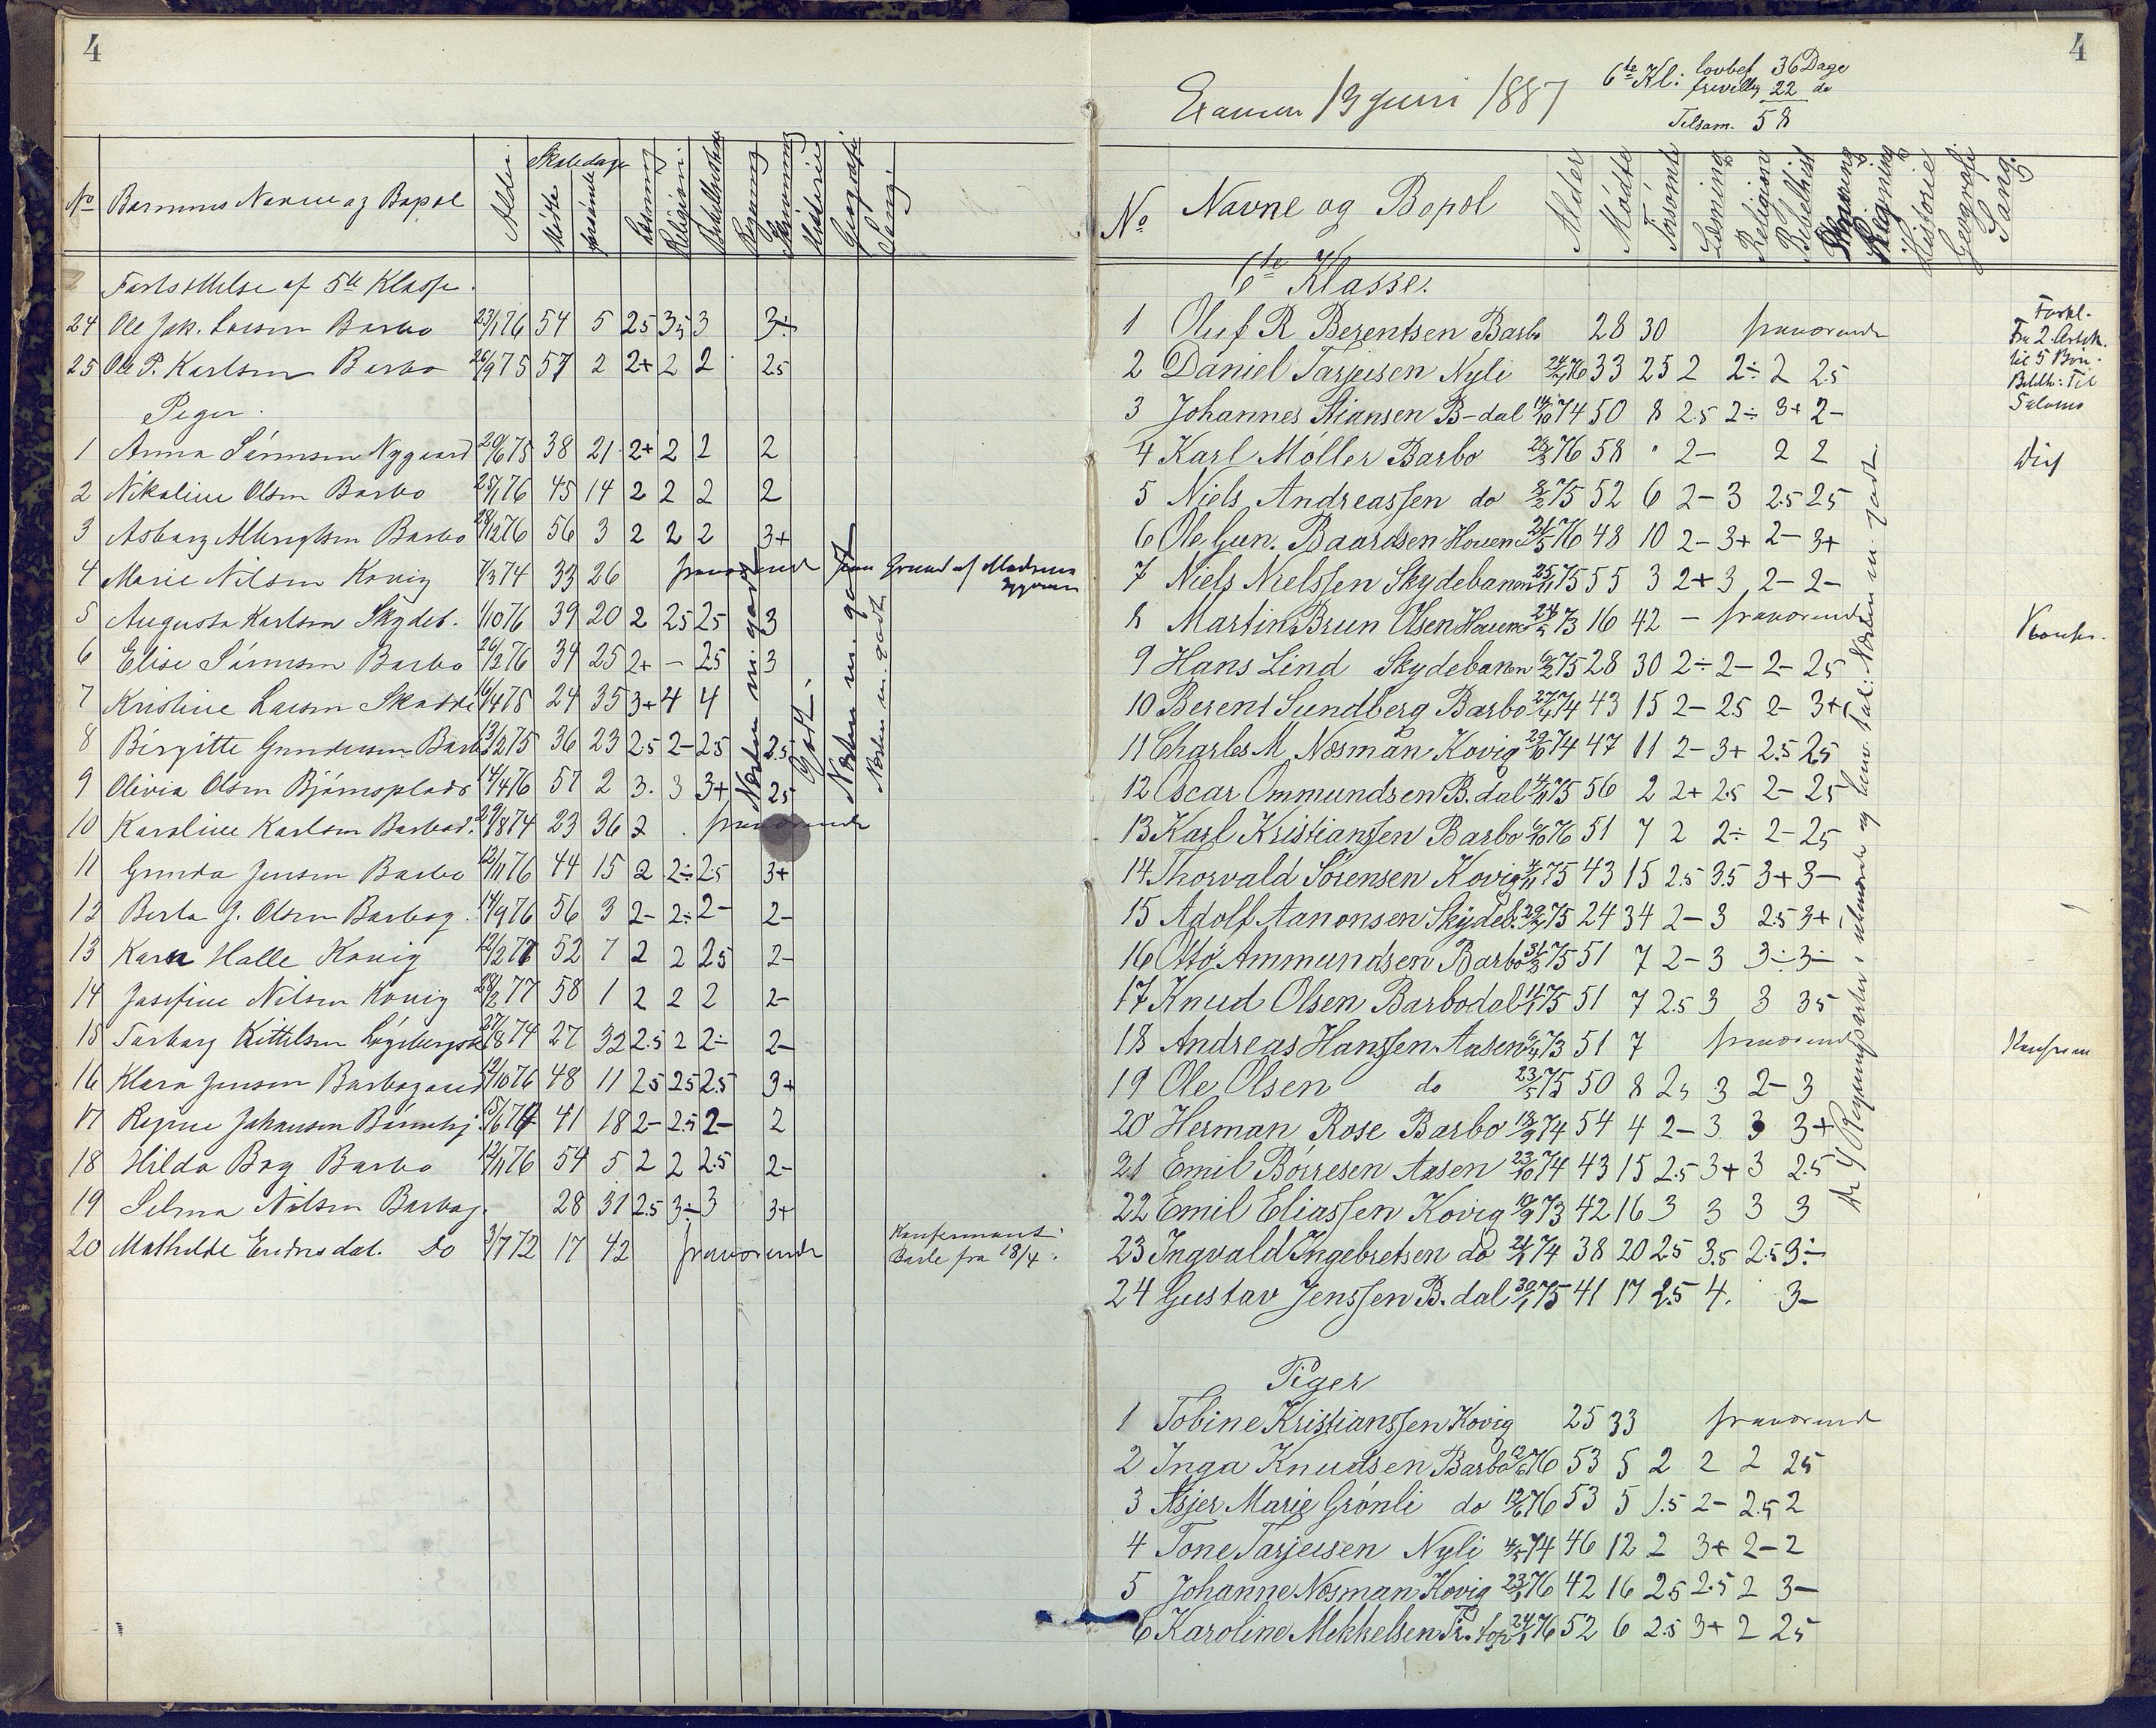 4
No Barnenes Navne og Bopæl Alder Skoledage Mødte forsømte Læsning Religion Bibelhistorie Regning Skrivning Historie Geografi Sang.
Fortsættelse af 5te Klasse.
24 Ole Jak. Larsen Barbo 23/1 76 54 5 2.5 3.5 3 3÷
25 Ole P. Karlsen Barbo 26/9 75 57 2 2+ 2 2 2.5
Piger.
1 Anna Sørensen Nygaard 20/6 75 38 21 2+ 2 2 2
2 Nikoline Olsen Barbo 25/1 76 45 14 2 2 2 2
3 Asborg Albregtsen Barbo 28/12 76 56 3 2 2 2 3+
4 Marie Nilsen Kovig 7/3 74 33 26 fraværende paa Grund af Moderens Sygdom
5 Augusta Karlsen Skydeb. 1/10 76 39 20 2 2.5 2.5 3
6 Elise Sørensen Barbo 26/2 76 34 25 2+ – 2.5 3
7 Kristine Larsen 16/4 75 24 35 3+ 4 4
8 Birgitte Gundersen Barbo 13/2 75 36 23 2.5 2- 2.5 2.5
9 Olivia Olsen Bjørnsplads 14/4 76 57 2 3. 3 3+ 2.5
10 Karoline Karlsen Barbod. 29/8 74 23 36 2 . fraværende
11 Gunda Jensen Barbo 12/11 76 44 15 2 2÷ 2.5 3+
12 Berta J. Olsen Barbog. 14/9 76 56 3 2- 2÷ 2- 2-
13 Karen Halle Kovig 12/2 77 52 7 2 2 2.5 2-
14 Josefine Nilsen Kovig 28/2 77 58 1 2 2 2 2-
15 Torborg Kittilsen 27/8 74 27 32 2.5 2 2÷ 2-
16 Klara Jensen Barbogaard 12/10 76 48 11 2.5 2.5 2.5 3+
17 Regine Johansen 15/6 74 41 18 2- 2.5 2- 2
18 Hilda Bog Barbo 12/11 76 54 5 2 2 2.5 2-
19 Selma Nilsen Barbog. 28 31 2.5 3÷ 3 3+
20 Mathilde Endresdat. Do 3/7 72 17 42 fraværende Konfirmant. Barbo fra 18/4.
Næsten m. godt
Godt.
Næsten m. godt
Næsten m. godt
4
Examen 13 Juni 1887
6te Kl: lovbef 36 Dage
frivillig 22 do
Tilsam. 58
No Navne og Bopæl Alder Mødte Forsømte Læsning Religion Bibelhist Regning Historie Geografi Sang.
6te Klasse.
1 Oluf R Berentsen Barbo 28 30 fraværende
2 Daniel Tarjeisen Nyli 24/4 76 33 25 2 2÷ 2 2.5
3 Johannes Stiansen B-dal 14/10 74 50 8 2.5 2÷ 3+ 2-
4 Karl Møller Barbo 28/3 76 58 " 2- 2 2
5 Niels Andreassen do 8/2 75 52 6 2- 3 2.5 2.5
6 Ole Gun. Baardsen Houene 24/5 76 48 10 2- 3+ 2- 3+
7 Niels Nielssen Skydebanen 25/11 75 55 3 2+ 3 2- 2-
8 Martin Brun Olsen Houene 24/5 73 16 42 – fraværende
9 Hans Lind Skydebanen 6/2 75 28 30 2÷ 2- 2- 2.5
10 Berent Sundberg Barbo 27/4 74 43 15 2- 2.5 2- 3+
11 Charles M Næsman Kovig 29/6 74 47 11 2- 3+ 2.5 2.5
12 Oscar Ommundsen B.dal 4/11 75 56 2 2+ 2.5 2- 2.5
13 Karl Kristianssen Barbo 6/10 76 51 7 2 2÷ 2- 2.5
14 Thorvald Sørensen Kovig 4/11 75 43 15 2.5 3.5 3+ 3-
15 Adolf Aanonsen Skydeb. 29/4 75 24 34 2- 3 2.5 3+
16 Otto Ammundsen Barbo 31/3 75 51 7 2- 3 3÷ 3÷
17 Knud Olsen Barbodal 11/1 75 51 7 2.5 3 3 3.5
18 Andreas Hanssen Aasen 6/4 73 51 7 fraværende
19 Ole Olsen do 23/5 75 50 8 2.5 3 2- 3
20 Herman Rose Barbo 18/9 74 54 4 2- 3 3 3+
21 Emil Børresen Aasen 23/10 74 43 15 2.5 3+ 3 2.5
22 Emil Eliassen Kovig 19/9 73 42 16 3 3 3 3
23 Ingvald Ingebretsen do 21/1 74 38 20 2.5 3.5 2.5 3÷
24 Gustav Jenssen B.dal 30/1 75 41 17 2.5 4. 3-
Piger
1 Tobine Kristianssen Kovig 25 33 fraværende
2 Inga Knudsen Barbo 12/6 76 53 5 2 2 2 2.5
3 Asjer Marie Grønli do 12/6 76 53 5 1.5 2- 2.5 2
4 Tone Tarjeisen Nyli 4/5 74 46 12 2 3+ 2- 2
5 Johanne Næsman Kovig 23/1 76 42 16 2.5 2.5 2 3-
6 Karoline Mekkelsen 24/1 76 52 6 2.5 3+ 2 2.5
Forkl.
Fra 2. Artik.
til 5 Bøn.
Bibelh: Til
Salomo
Konfir.